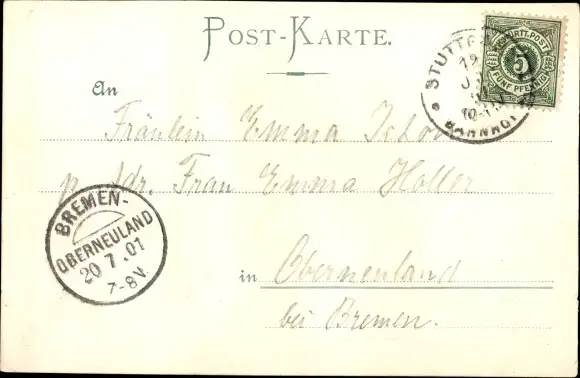 POST-KARTE.
STUTTG
BAHNHOF
K. WÜRTT. POST
5
FÜNF PFENNIG
An
Fräulein Emma
p. Adr. Frau Emma Holler
BREMEN-
OBERNEULAND
20 7. 01
7-8 V.
in Oberneuland
bei Bremen.